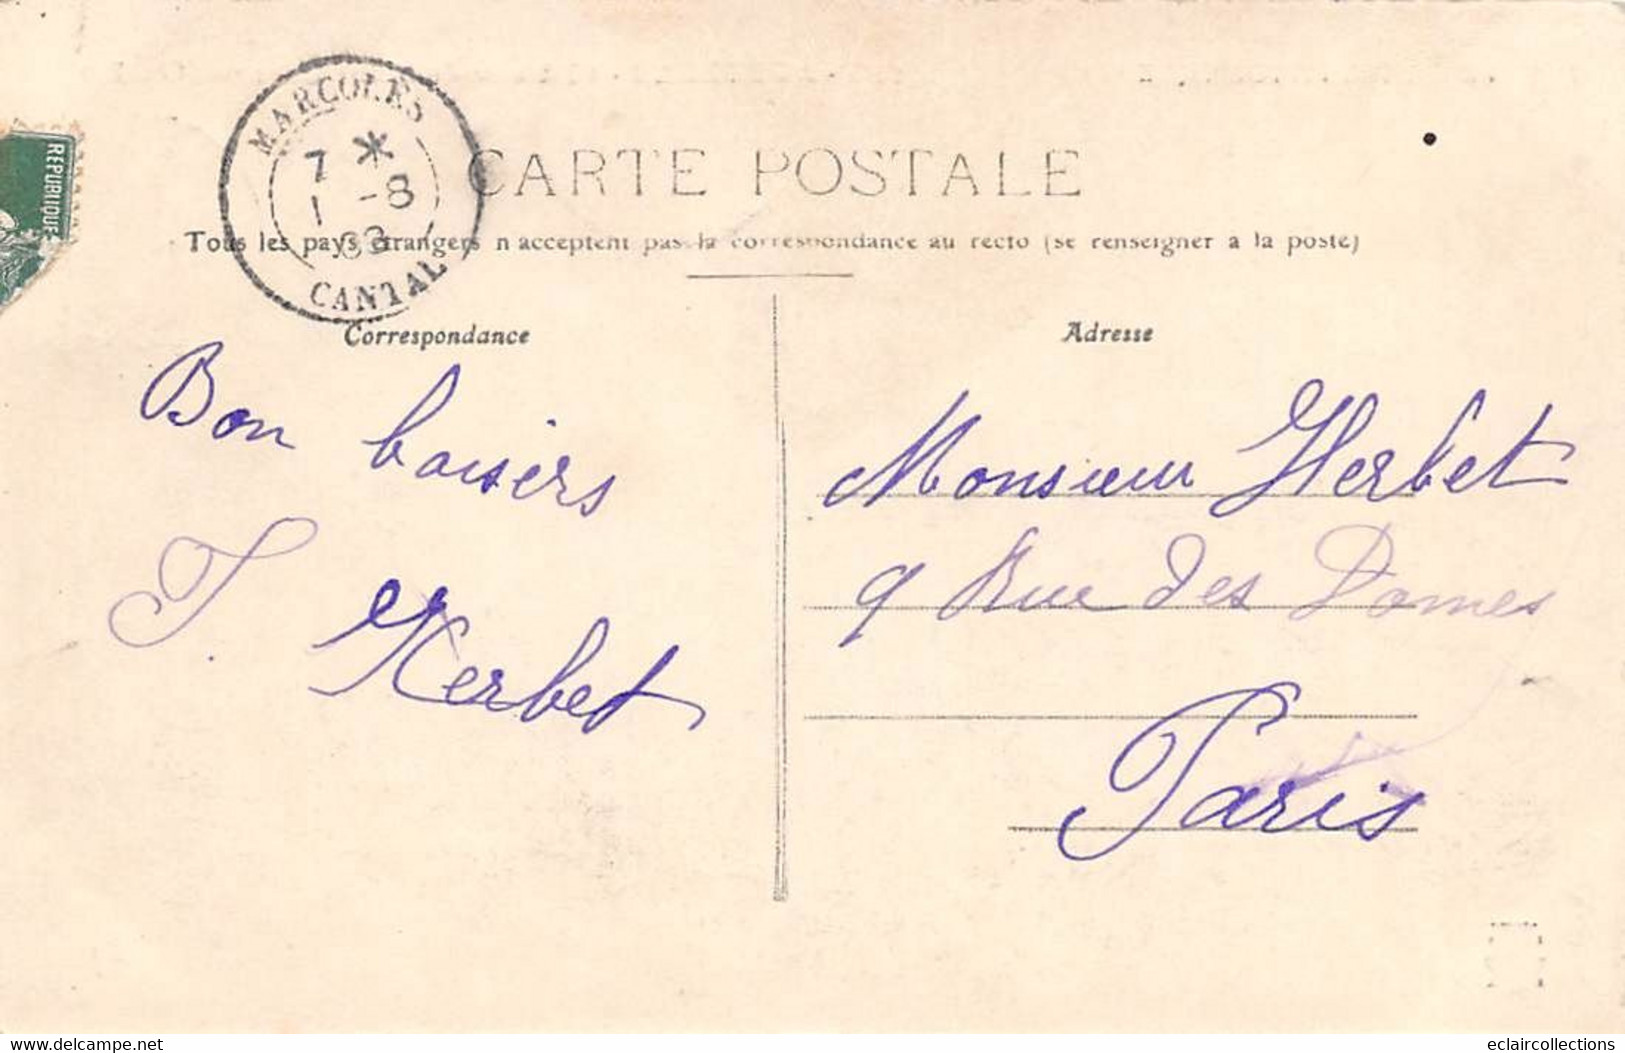 MARCOLES
7 *
1 -8
CANTAL
REPUBLIQUE
CARTE POSTALE
Tous les pays étrangers n'acceptent pas la correspondance au recto (se renseigner à la poste)
Correspondance
Adresse
Bon baisers
J. Herbet
Monsieur Herbet
9 Rue des Dames
Paris
www.delcampe.net
eclaircollections